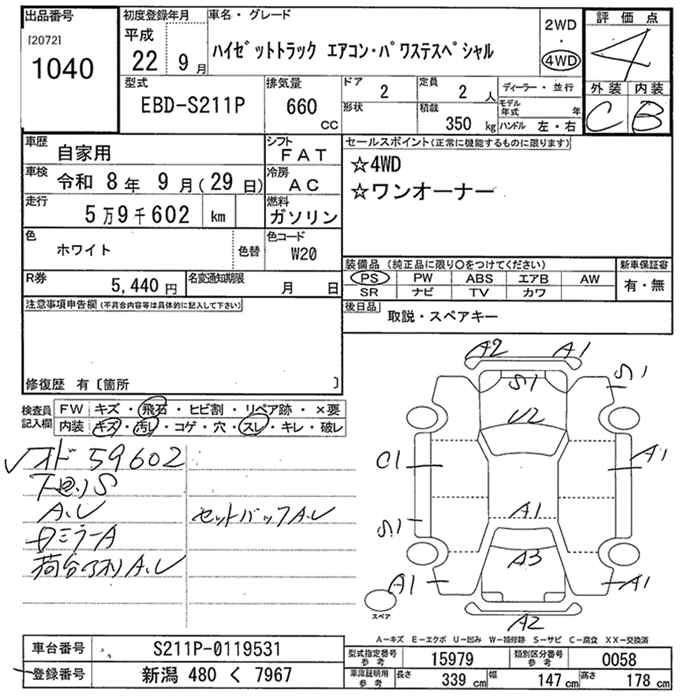 出品番号
[2072]
1040
初度登録年月
平成
22 9月
車名・グレード
ハイゼットトラック エアコン・パワステスペシャル
2WD
・
4WD
評価点
4
外装 内装
C B
型式
EBD-S211P
排気量
660
CC
ドア
2
形状
定員
2人
積載
350 kg
ディーラー・並行
モデル年式 年
ハンドル 左・右
車歴
自家用
シフト
FAT
車検
令和 8年 9月(29日)
冷房
AC
走行
5万9千602 km
燃料
ガソリン
色
ホワイト
色替
色コード
W20
R券
5,440円
名変通知期限
月 日
セールスポイント(正常に機能するものに限ります)
☆4WD
☆ワンオーナー
装備品 (純正品に限り○をつけてください)
PS PW ABS エアB AW
SR ナビ TV カワ
新車保証書
有・無
後日品
取説・スペアキー
注意事項申告欄(不具合内容等は具体的に記入して下さい)
修復歴 有〔箇所 〕
検査員
記入欄
FW キズ・飛石・ヒビ割・リペア跡・×要
内装 キズ・汚レ・コゲ・穴・スレ・キレ・破レ
✓オド 59602
下回りS
A.U
セットバックA.U
ロミラーA
A.U
A2 A1
S1 S1
U2
C1 A1
S1 A1
A3
A1 A1
A2
スペア
A―キズ E―エクボ U―凹み W―補修跡 S―サビ C―腐食 XX―交換済
車台番号
S211P-0119531
登録番号
新潟 480 く 7967
型式指定番号
参考
15979
類別区分番号
参考
0058
車庫証明用
参考
長さ 339 cm 幅 147 cm 高さ 178 cm